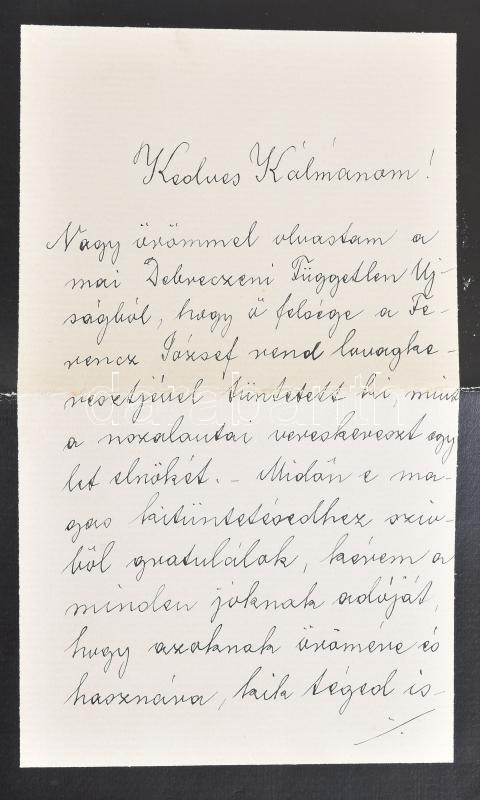 Kedves Kálmánom!
Nagy örömmel olvastam a
mai Debreczeni Független Uj-
ságból, hogy ő felsége a Fe-
rencz József rend lovagke-
resztjével tüntetett ki, mint
a nozalautai vereskereszt egy
let elnökét. – Midőn e ma-
gas kitüntetésedhez sziv-
ből gratulálok, kérem a
minden jóknak adóját,
hogy azoknak örömére és
hasznára, kik téged is-
./.